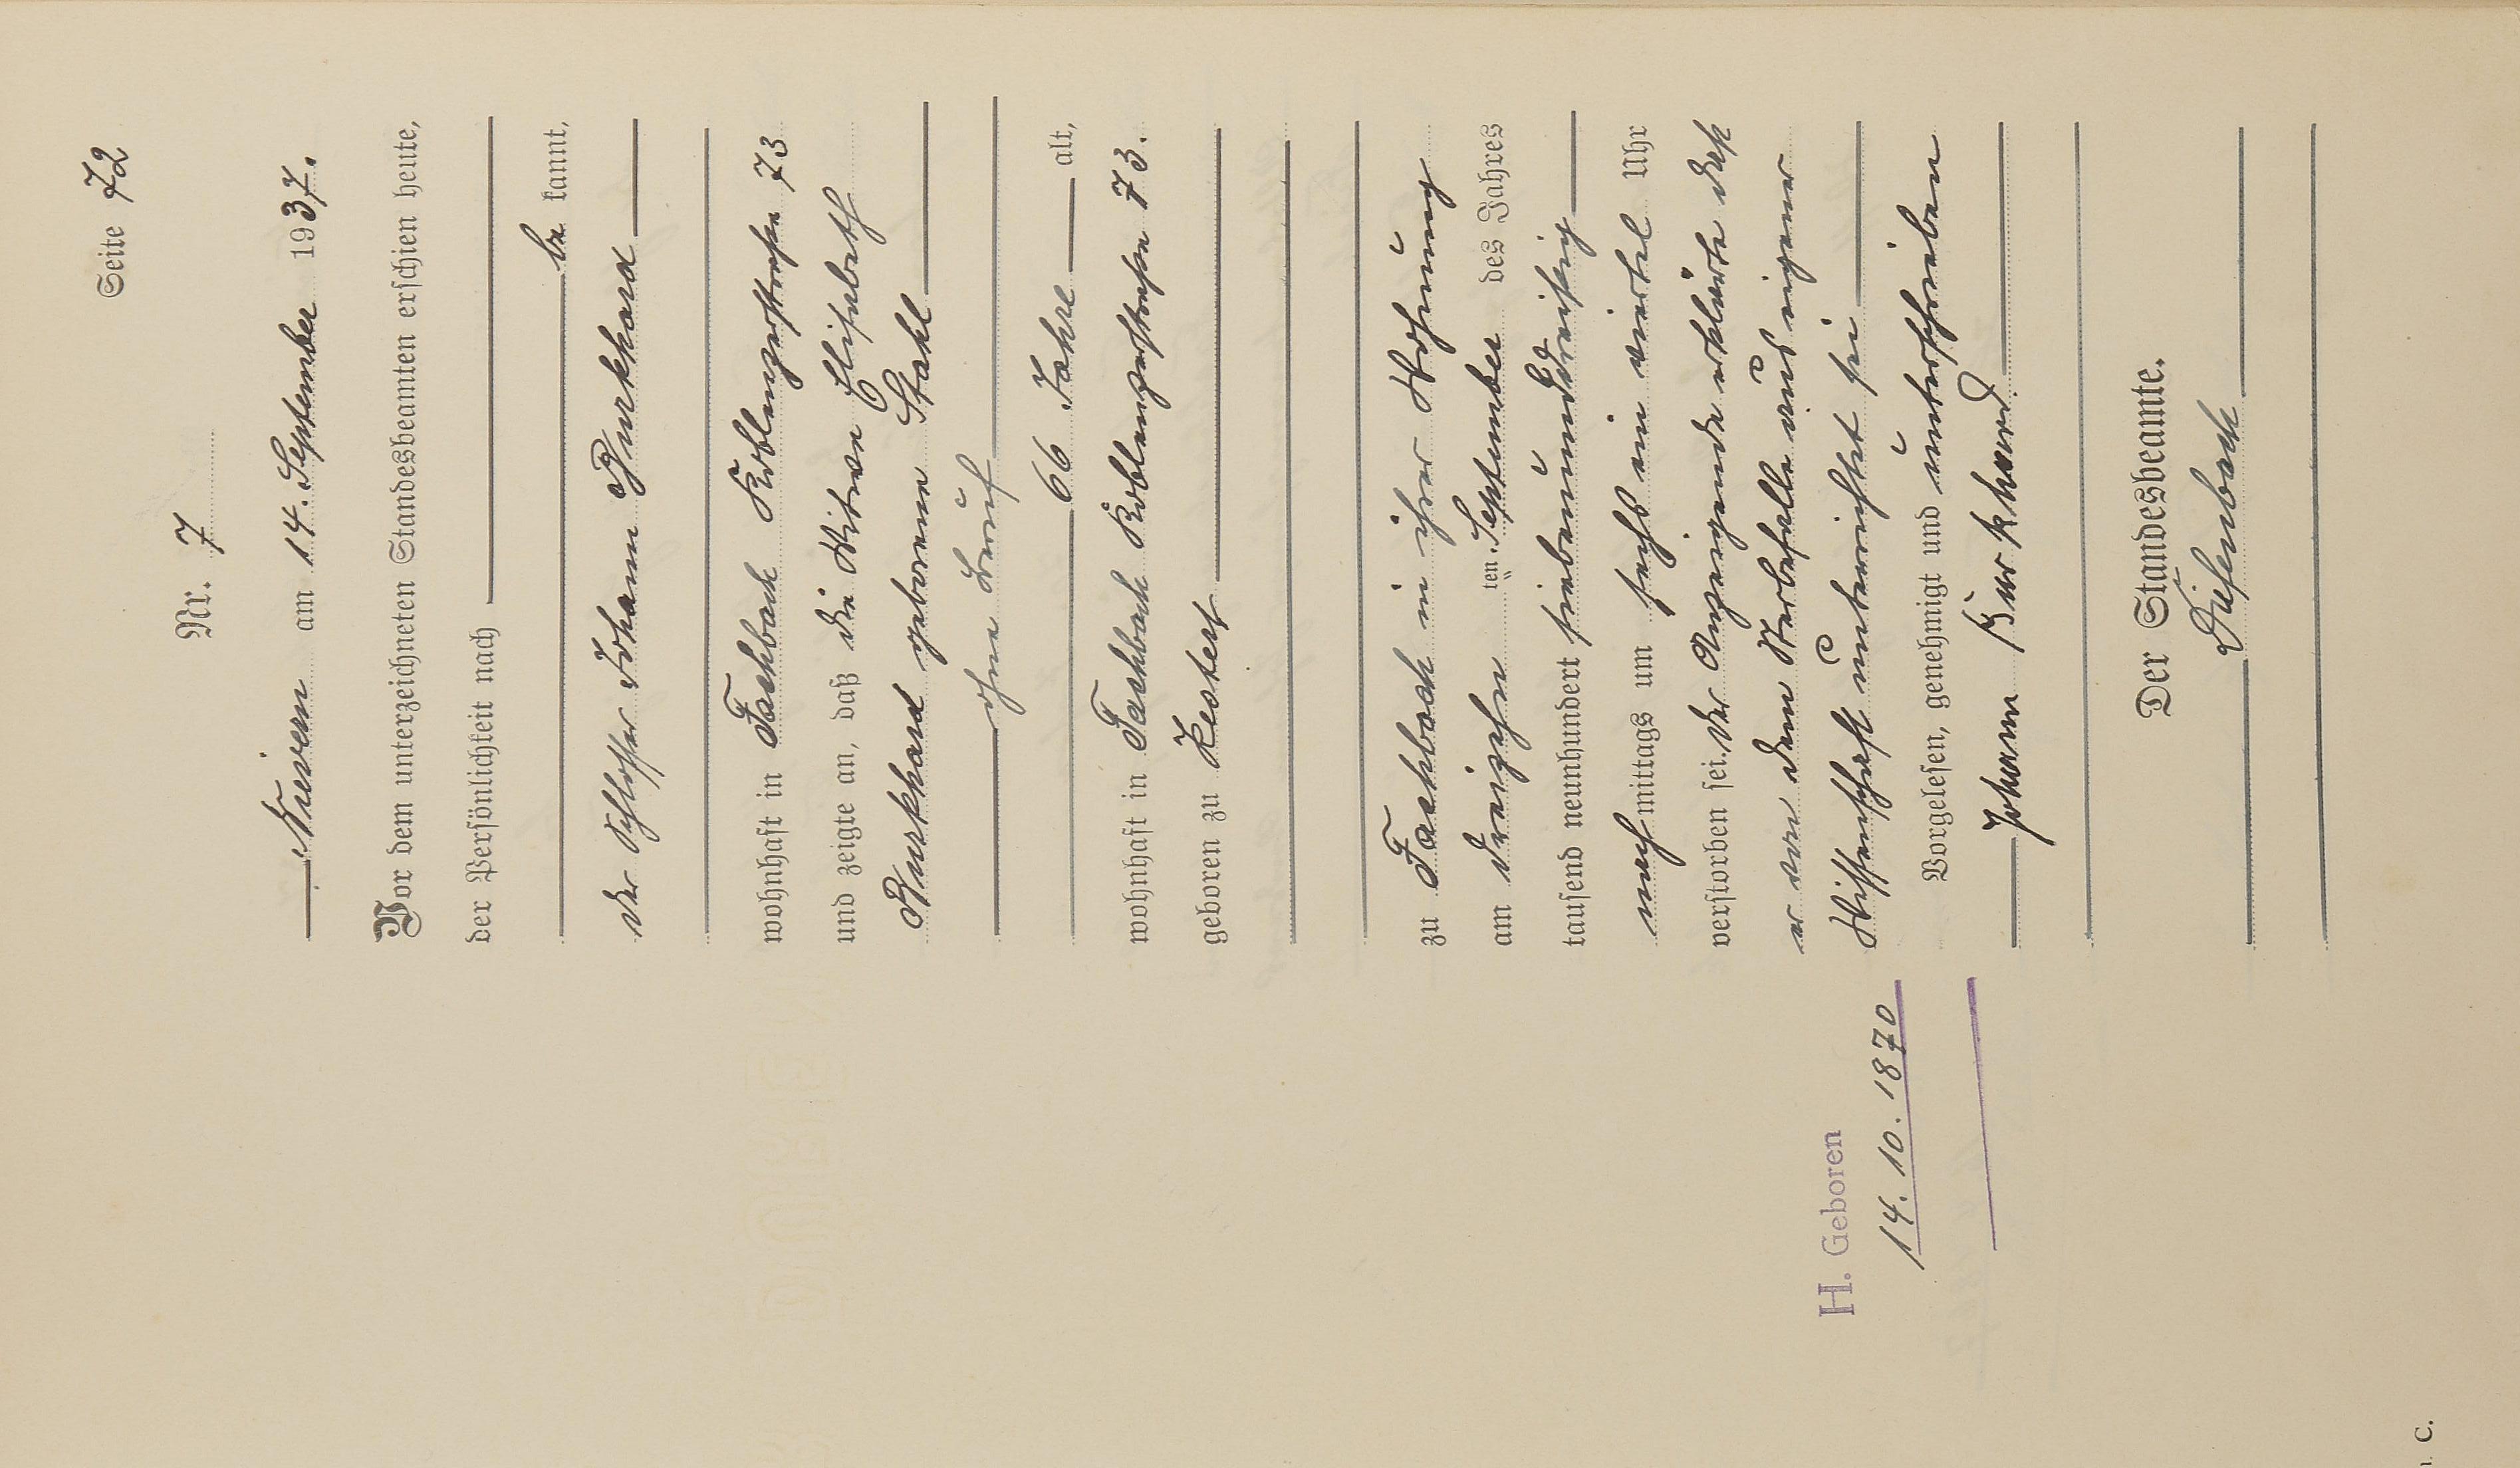 Seite 72
Nr. 7
Nievern am 14. September 1937.
Vor dem unterzeichneten Standesbeamten erschien heute,
der Persönlichkeit nach
be kannt,
der Schlosser Johann Burkhard
wohnhaft in Fachbach Koblenzerstrasse 73
und zeigte an, daß die Witwe Elisabeth
Burkhard geborene Stahl
ohne Beruf
66 Jahre alt,
wohnhaft in Fachbach Koblenzerstrasse 73.
geboren zu Kestert
zu Fachbach in ihrer Wohnung
am dreizehn ten September des Jahres
tausend neunhundert siebenunddreißig
nachmittags um sechs ein viertel Uhr
verstorben sei. Der Anzeigende erklärte daß
er von dem Sterbefalle aus eigener
Wissenschaft unterrichtet sei
Vorgelesen, genehmigt und unterschrieben
Johann Burkhard
Der Standesbeamte.
Diefenbach
H. Geboren
14. 10. 1870
C.